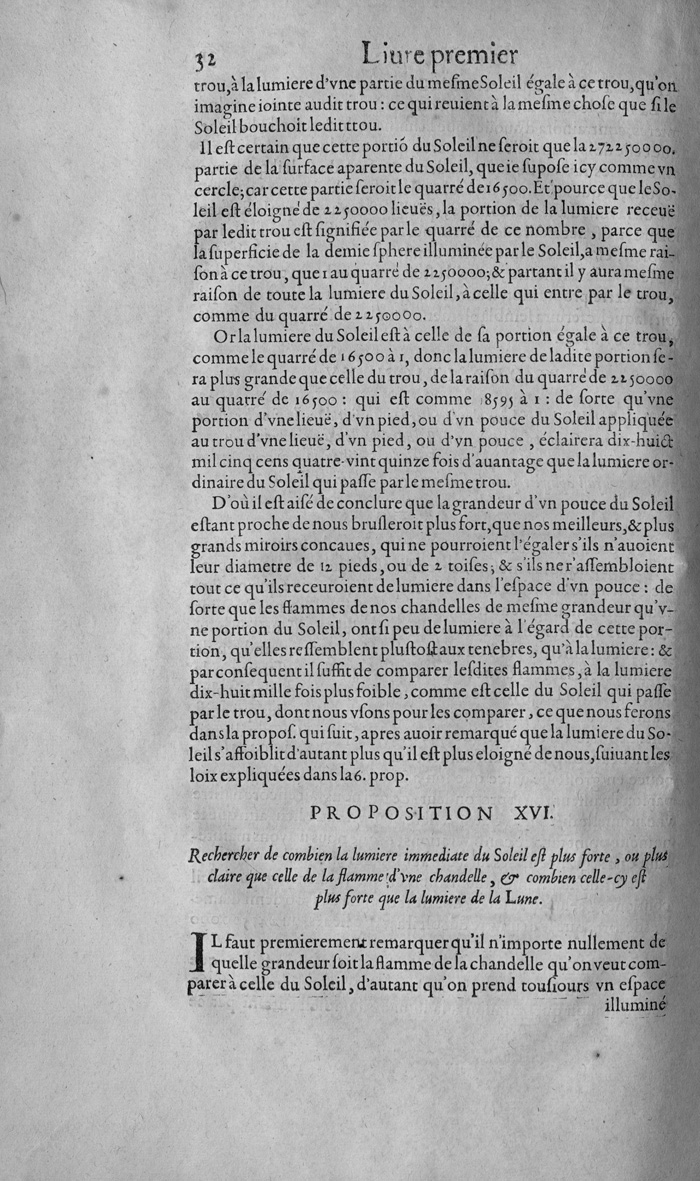 32 Liure premier
trou, à la lumiere d'vne partie du mesme Soleil égale à ce trou, qu'on
imagine iointe audit trou : ce qui reuient à la mesme chose que si le
Soleil bouchoit ledit ttou.
Il est certain que cette portiõ du Soleil ne seroit que la 272250000.
partie de la surface aparente du Soleil, que ie supose icy comme vn
cercle; car cette partie seroit le quarré de 16500. Et pource que le So-
leil est éloigné de 2250000 lieuës, la portion de la lumiere receuë
par ledit trou est signifiée par le quarré de ce nombre, parce que
la superficie de la demie sphere illuminée par le Soleil, a mesme rai-
son à ce trou, que 1 au quarré de 2250000; & partant il y aura mesme
raison de toute la lumiere du Soleil, à celle qui entre par le trou,
comme du quarré de 2250000.
Or la lumiere du Soleil est à celle de sa portion égale à ce trou,
comme le quarré de 16500 à 1, donc la lumiere de ladite portion se-
ra plus grande que celle du trou, de la raison du quarré de 2250000
au quarré de 16500 : qui est comme 18595 à 1 : de sorte qu'vne
portion d'vne lieuë, d'vn pied, ou d'vn pouce du Soleil appliquée
au trou d'vne lieuë, d'vn pied, ou d'vn pouce, éclairera dix-huict
mil cinq cens quatre-vint quinze fois d'auantage que la lumiere or-
dinaire du Soleil qui passe par le mesme trou.
D'où il est aisé de conclure que la grandeur d'vn pouce du Soleil
estant proche de nous brusleroit plus fort, que nos meilleurs, & plus
grands miroirs concaues, qui ne pourroient l'égaler s'ils n'auoient
leur diametre de 12 pieds, ou de 2 toises; & s'ils ne r'assembloient
tout ce qu'ils receuroient de lumiere dans l'espace d'vn pouce : de
sorte que les flammes de nos chandelles de mesme grandeur qu'v-
ne portion du Soleil, ont si peu de lumiere à l'égard de cette por-
tion, qu'elles ressemblent plustost aux tenebres, qu'à la lumiere : &
par consequent il suffit de comparer lesdites flammes, à la lumiere
dix-huit mille fois plus foible, comme est celle du Soleil qui passe
par le trou, dont nous vsons pour les comparer, ce que nous ferons
dans la propos. qui suit, apres auoir remarqué que la lumiere du So-
leil s'affoiblit d'autant plus qu'il est plus eloigné de nous, suiuant les
loix expliquées dans la 6. prop.
PROPOSITION XVI.
Rechercher de combien la lumiere immediate du Soleil est plus forte, ou plus
claire que celle de la flamme d'vne chandelle, & combien celle-cy est
plus forte que la lumiere de la Lune.
IL faut premierement remarquer qu'il n'importe nullement de
quelle grandeur soit la flamme de la chandelle qu'on veut com-
parer à celle du Soleil, d'autant qu'on prend tousiours vn espace
illuminé